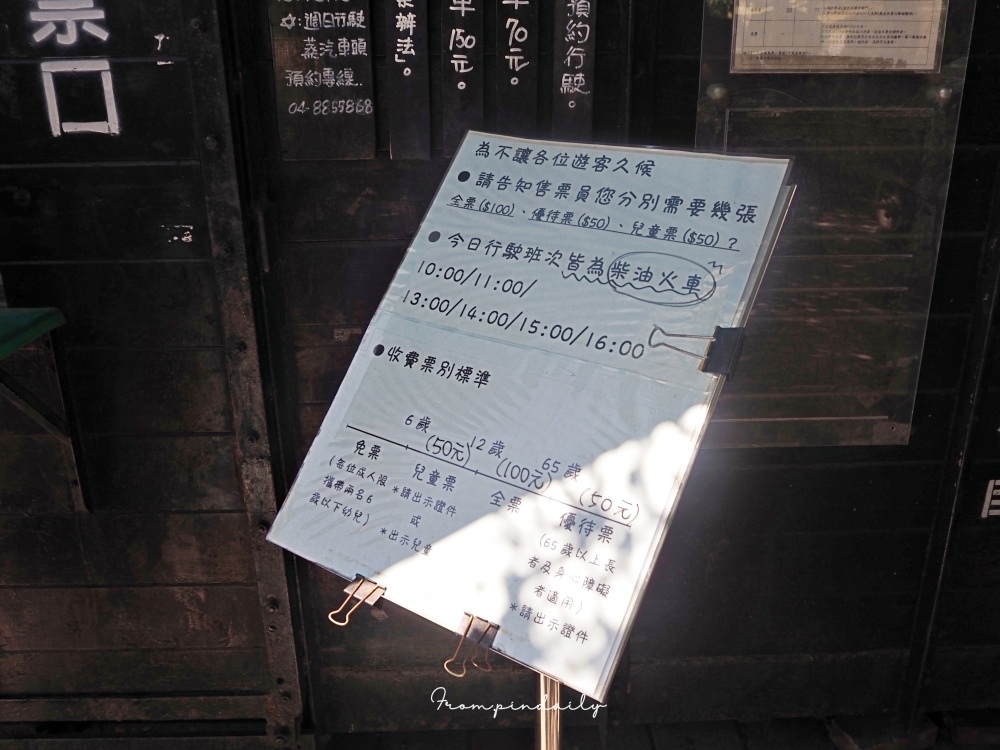 票口
☆:週日行駛
蒸汽車頭
預約專線.
04-8855868
辦法」。
車150元。
70元。
預約行駛。
為不讓各位遊客久候
●請告知售票員您分別需要幾張
全票($100)、優待票($50)、兒童票($50)?
●今日行駛班次皆為柴油火車~
10:00/11:00/
13:00/14:00/15:00/16:00
●收費票別標準
6歲
12歲
65歲
(50元)
(100元)
(50元)
免票
(每位成人限
攜帶兩名6
歲以下幼兒)
兒童票
*請出示證件
或
*出示兒童
全票
優待票
(65歲以上長
者及身心障礙
者適用)
*請出示證件
Frompindaily